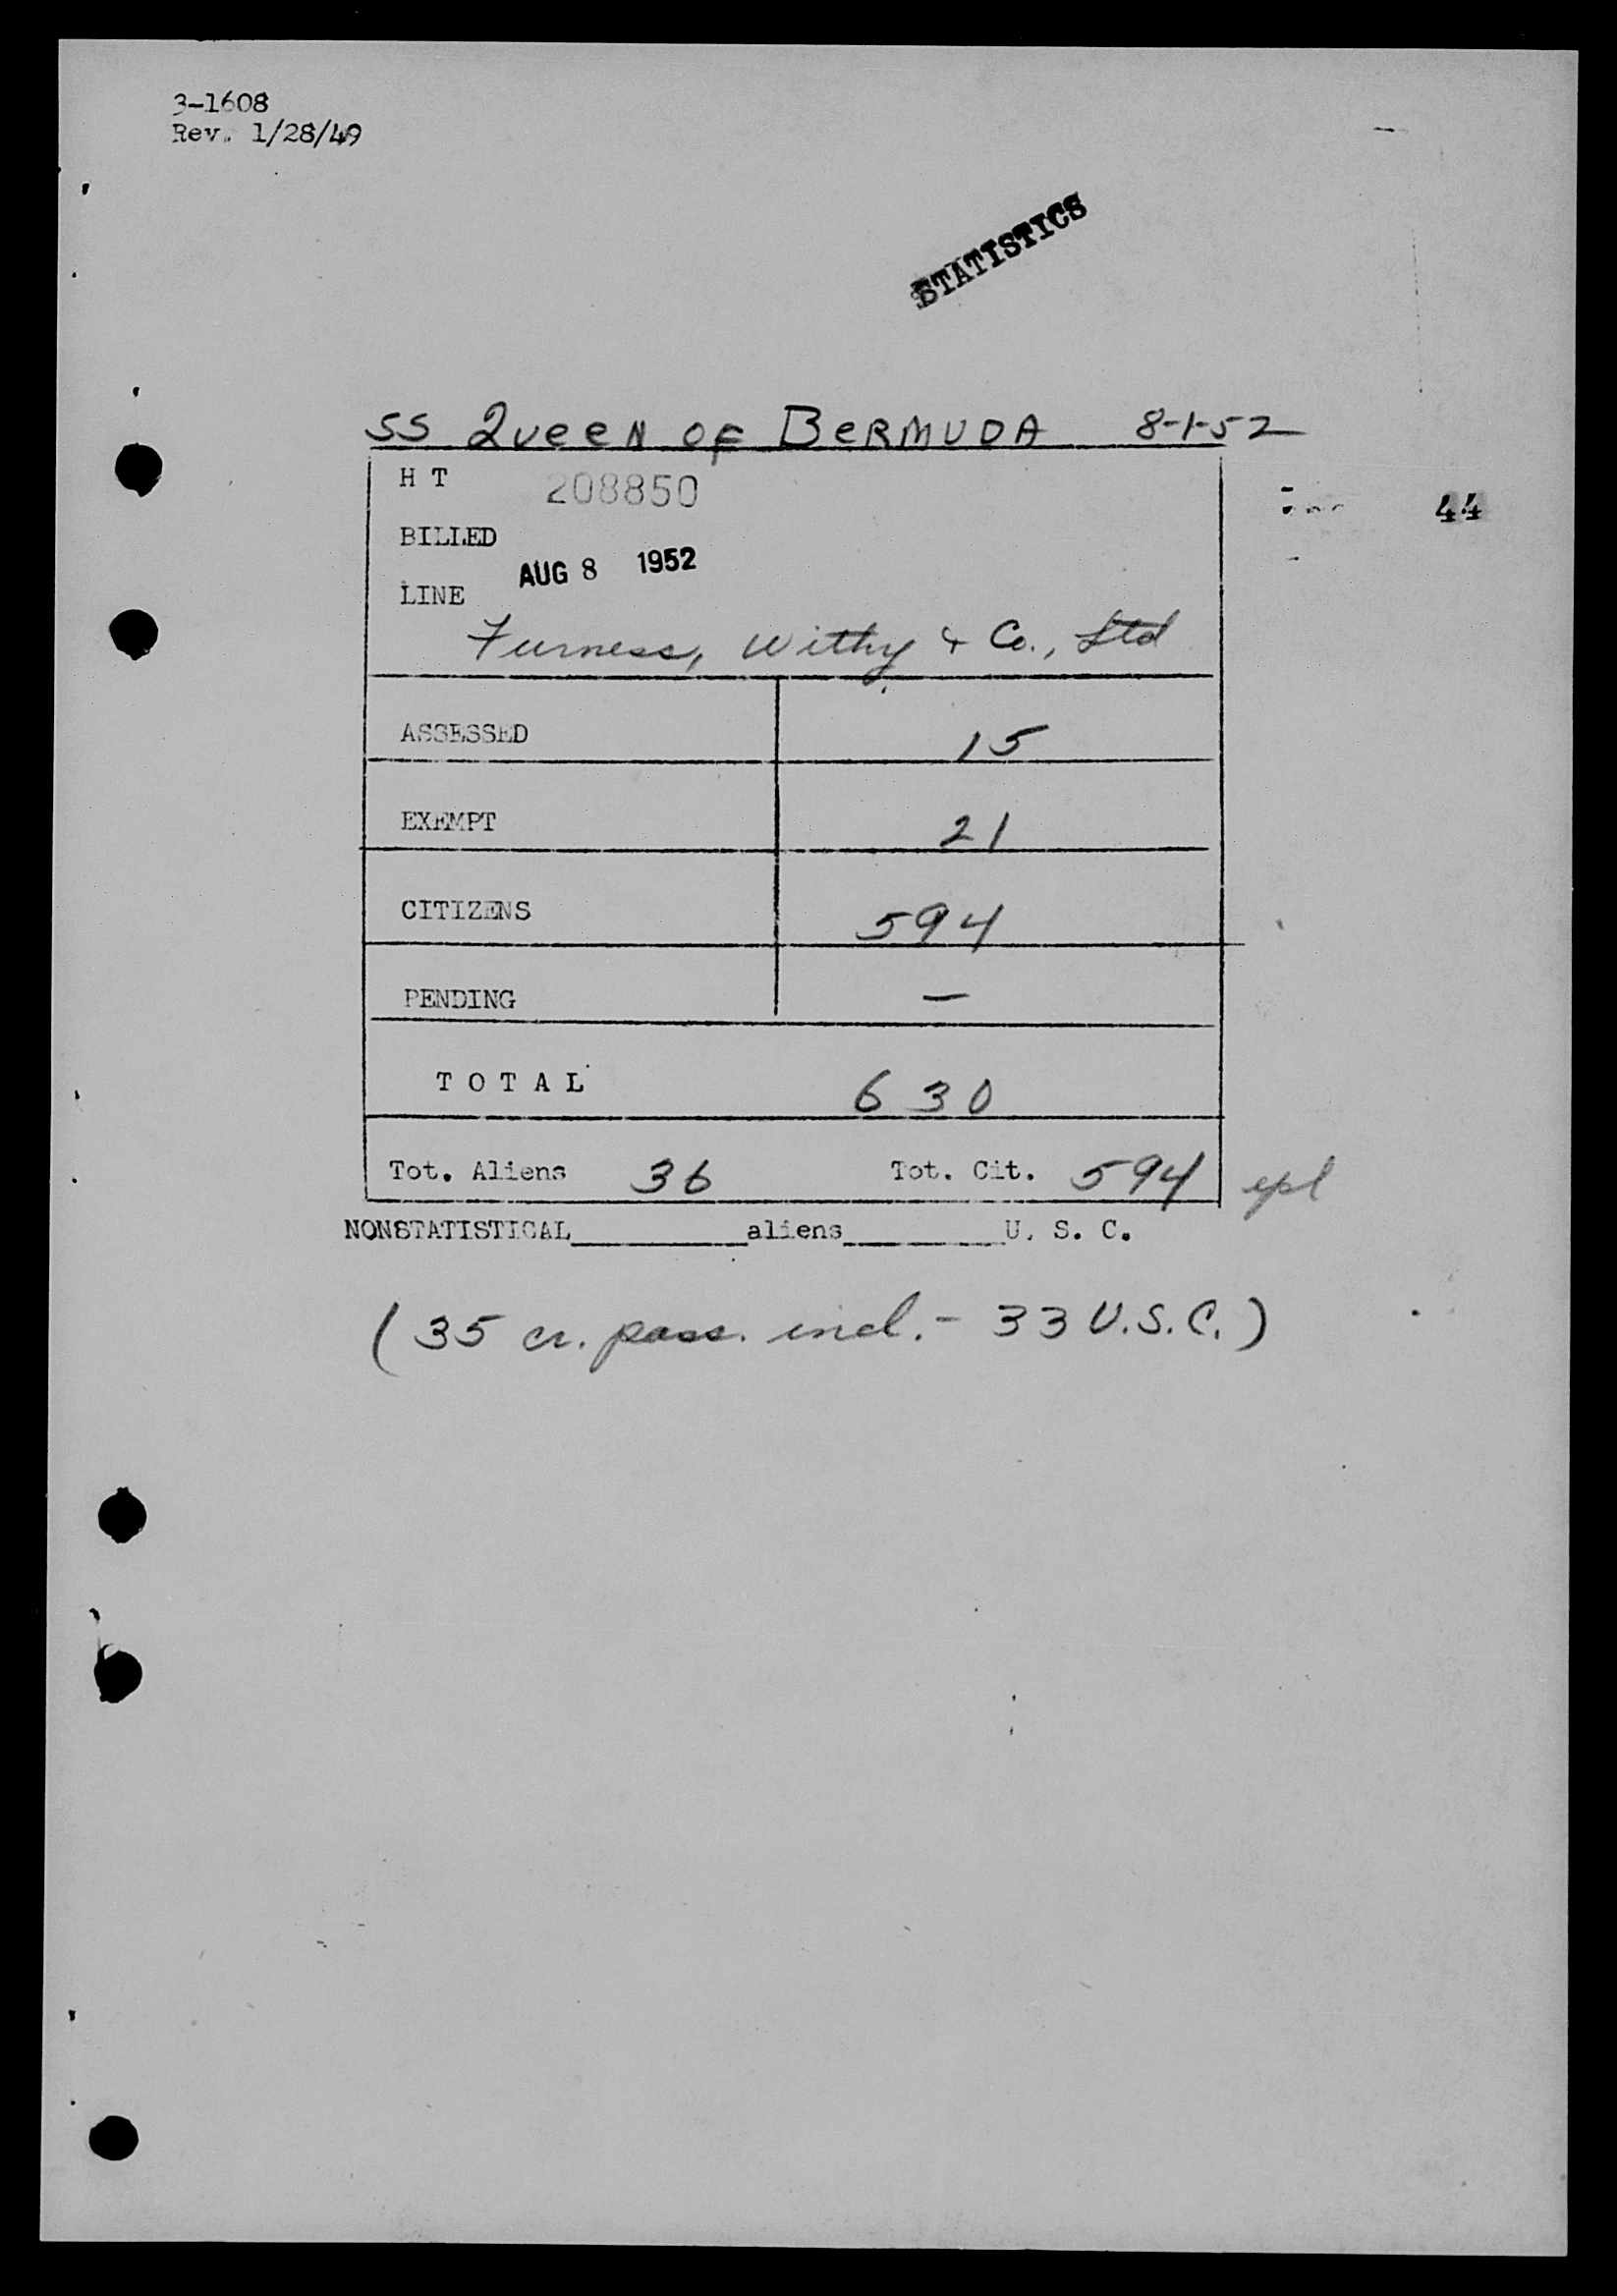 3-1608
Rev. 1/28/49
STATISTICS
SS QUEEN OF BERMUDA 8-1-52
H T 208850
44
BILLED
AUG 8 1952
LINE
Furness, Withy & Co., Ltd
ASSESSED 15
EXEMPT 21
CITIZENS 594
PENDING —
TOTAL 630
Tot. Aliens 36 Tot. Cit. 594
NONSTATISTICAL________aliens________U. S. C.
(35 cr. pass. incl. - 33 U.S.C.)